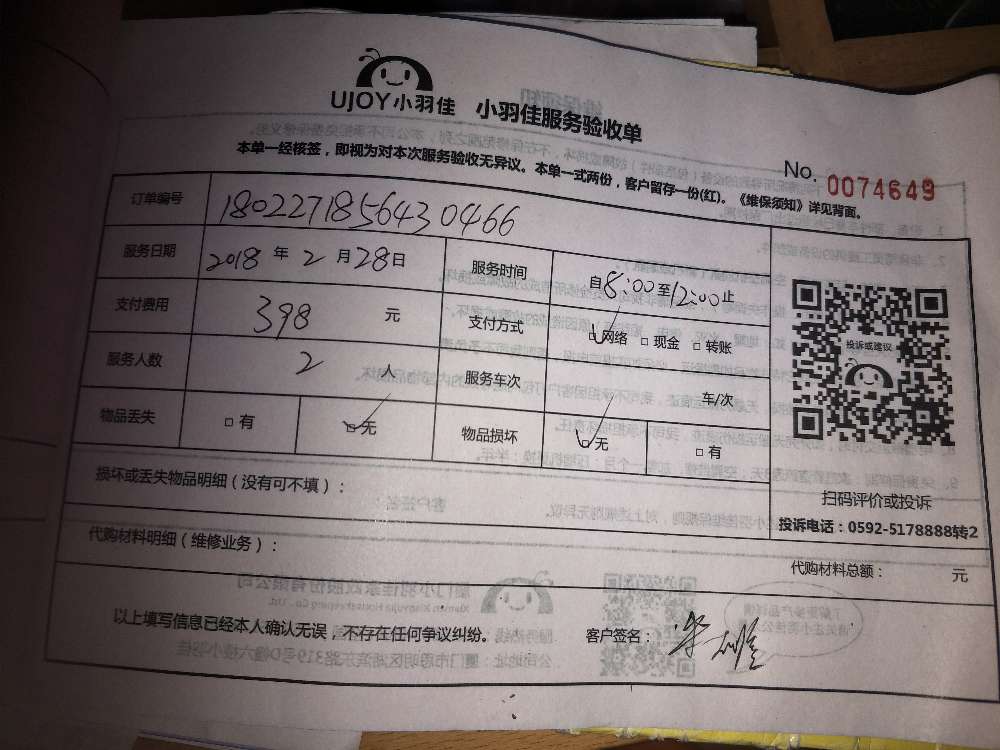 UJOY小羽佳 小羽佳服务验收单
本单一经核签，即视为对本次服务验收无异议。本单一式两份，客户留存一份(红)。《维保须知》详见背面。
No. 0074649
订单编号 180227185643 0466
服务日期 2018 年 2 月 28 日 服务时间 自8:00至12:00止
支付费用 398 元 支付方式 网络 现金 转账
服务人数 2 人 服务车次 车/次
物品丢失 有 无 物品损坏 无 有
投诉或建议
扫码评价或投诉
投诉电话：0592-5178888转2
损坏或丢失物品明细（没有可不填）：
代购材料明细（维修业务）：
代购材料总额： 元
以上填写信息已经本人确认无误，不存在任何争议纠纷。 客户签名：